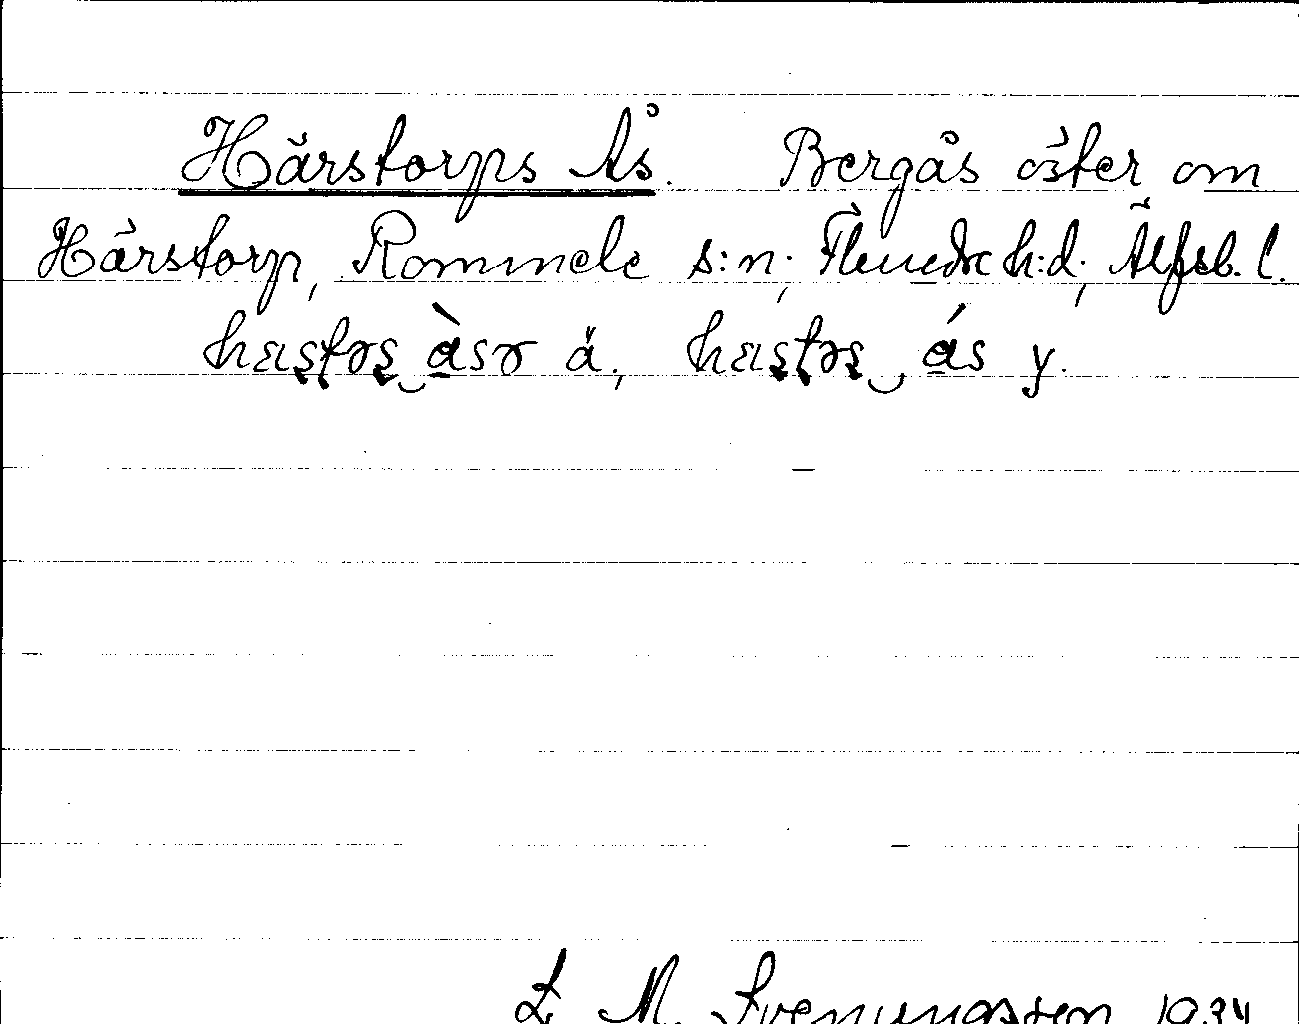 Härstorps Ås. Bergås öster om
Härstorp, Rommele s:n, Flundre h:d, Älfsb. l.
hæʂʈəʂ‿àsə ä., hæʂʈəʂ‿ás y.
L. M. Svenungsson 1934